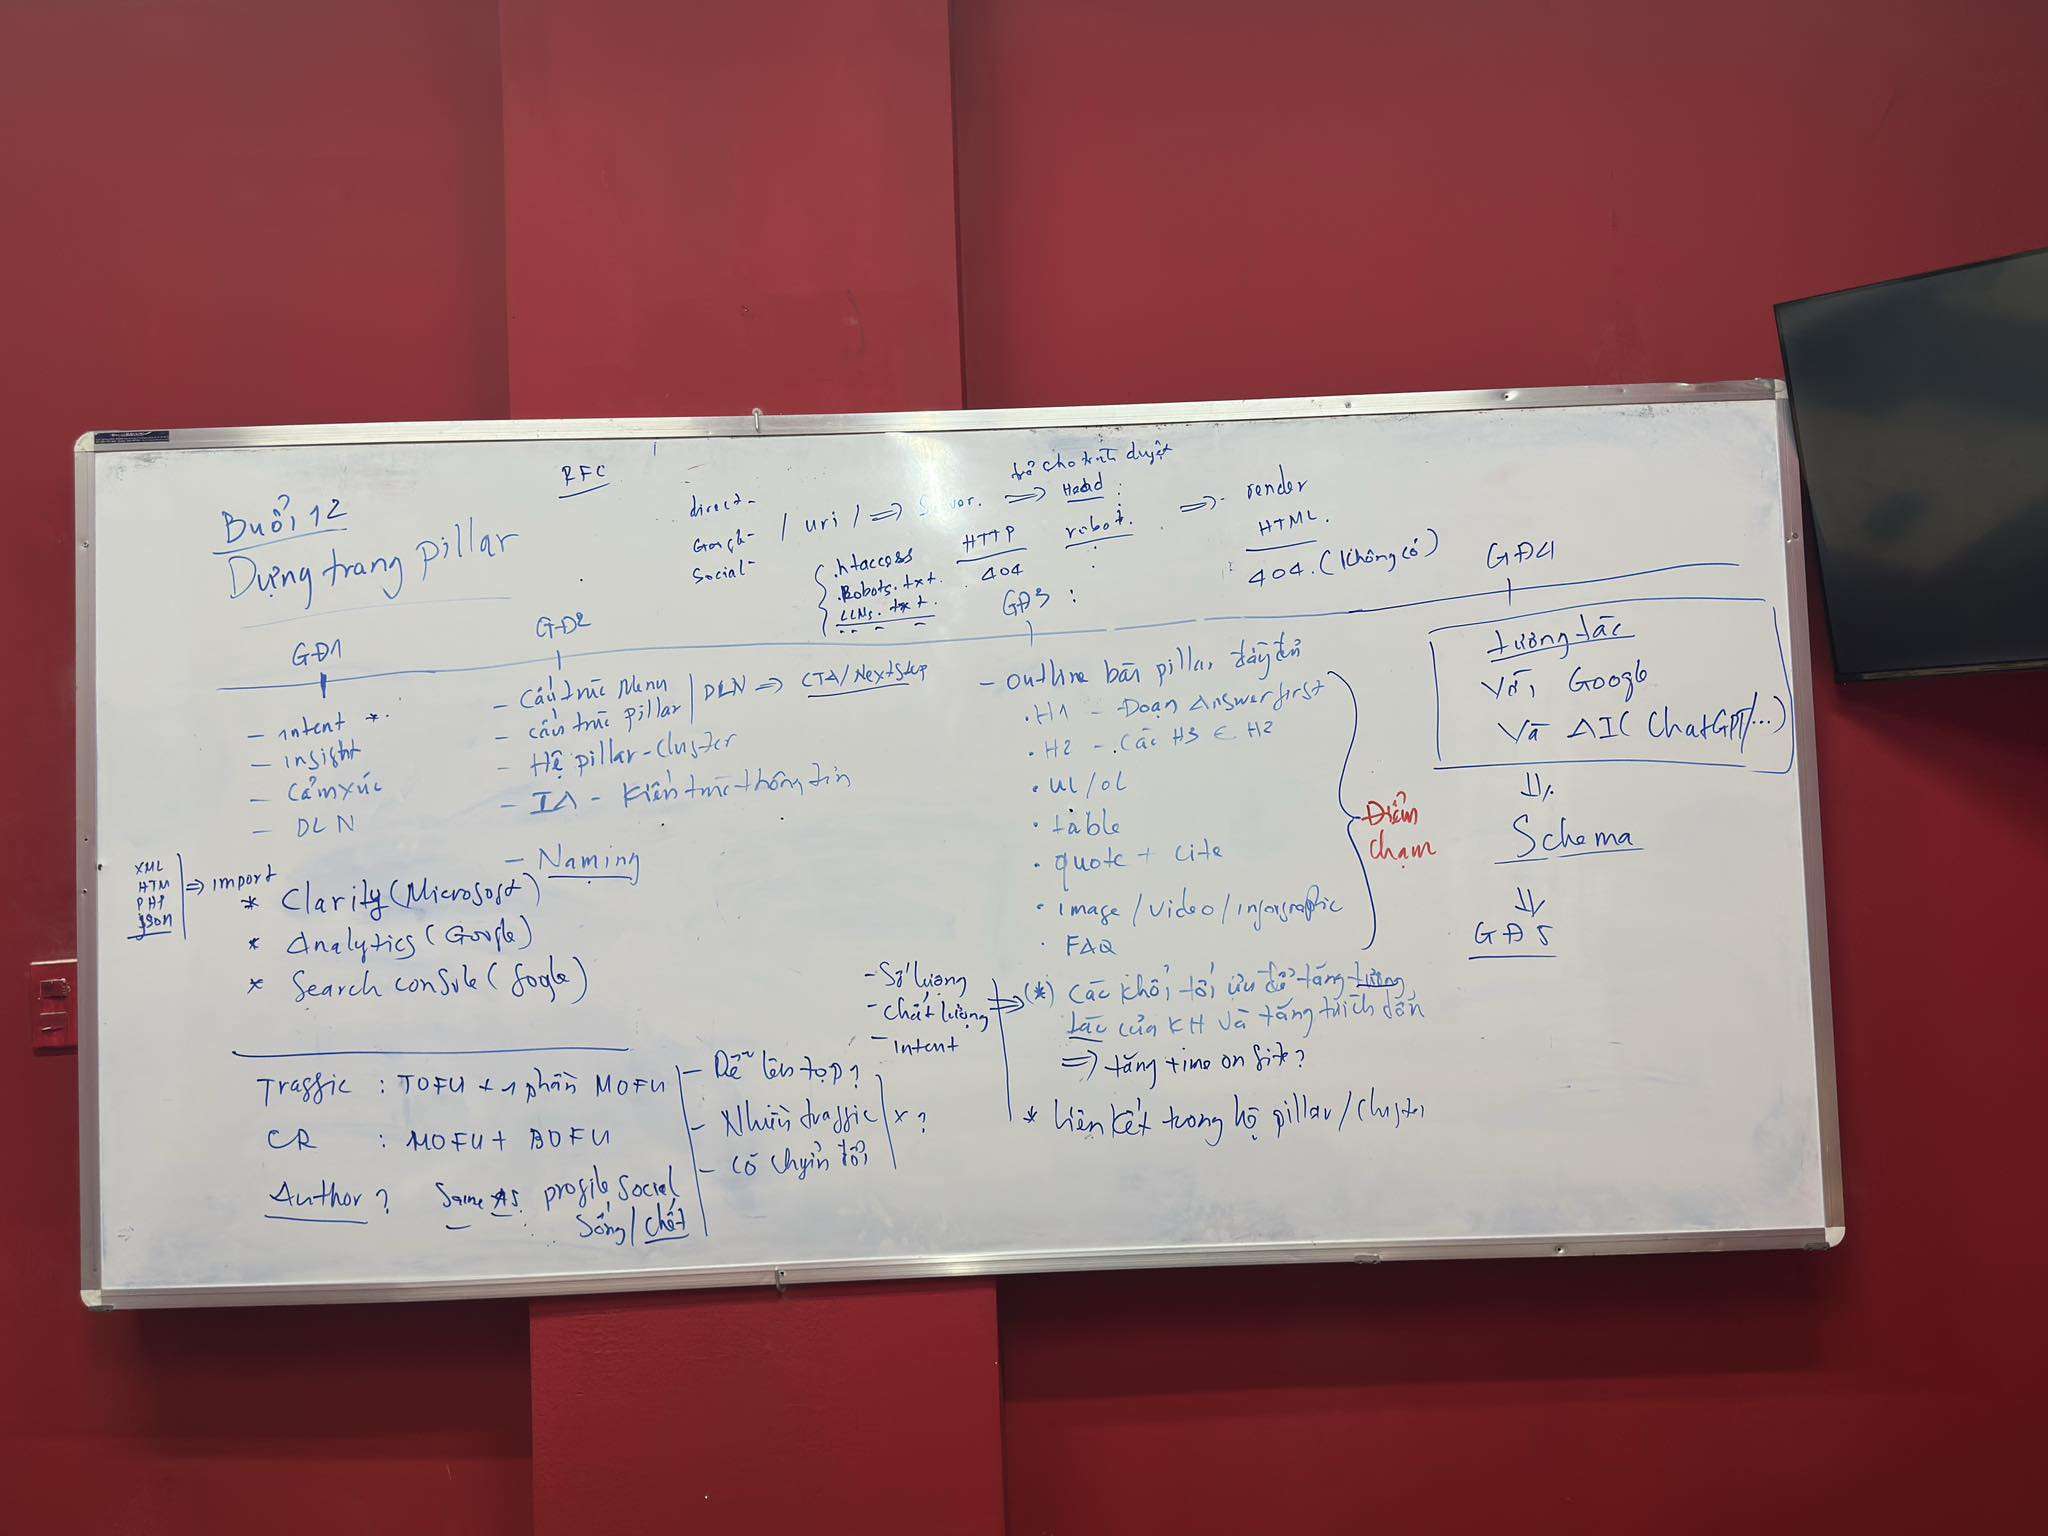 Buổi 12
Dựng trang pillar
RFC
direct -
Google -
Social -
/ uri / => Server. => Head :
trả cho trình duyệt
.htaccess
.Robots.txt.
LLMs.txt.
HTTP
404
robot.
=> render
HTML.
404. (Không có)
GĐ1
- intent *.
- insight
- Cảm xúc
- DLN
GĐ2
- Cấu trúc Menu
- cấu trúc pillar
DLN => CTA/NextStep
- Hệ pillar-Cluster
- IA - Kiến trúc thông tin
- Naming
XML
HTM
PHP
Json
=> import
* Clarity (Microsoft)
* Analytics (Google)
* Search console (Google)
GĐ3 :
- Outline bài pillar đầy đủ
. H1 - Đoạn Answer first
. H2 - Các H3 ∈ H2
. Ul/ol
. table
. quote + cite
. image / video / infographic
. FAQ
Điểm
chạm
- Số lượng
- Chất lượng
- intent
=> (*) Các khối tối ưu để tăng tương
tác của KH và tăng trích dẫn
=> tăng time on site?
* Liên kết trong hệ pillar/cluster
GĐ4
tương tác
Với Google
Và AI (ChatGPT/...)
Schema
GĐ5
Traffic : TOFU + 1 phần MOFU
CR : MOFU + BOFU
Author ? Same As. profile Social
Sống / chết
- Dễ lên top?
- Nhiều traffic
- Có chuyển đổi
* ?